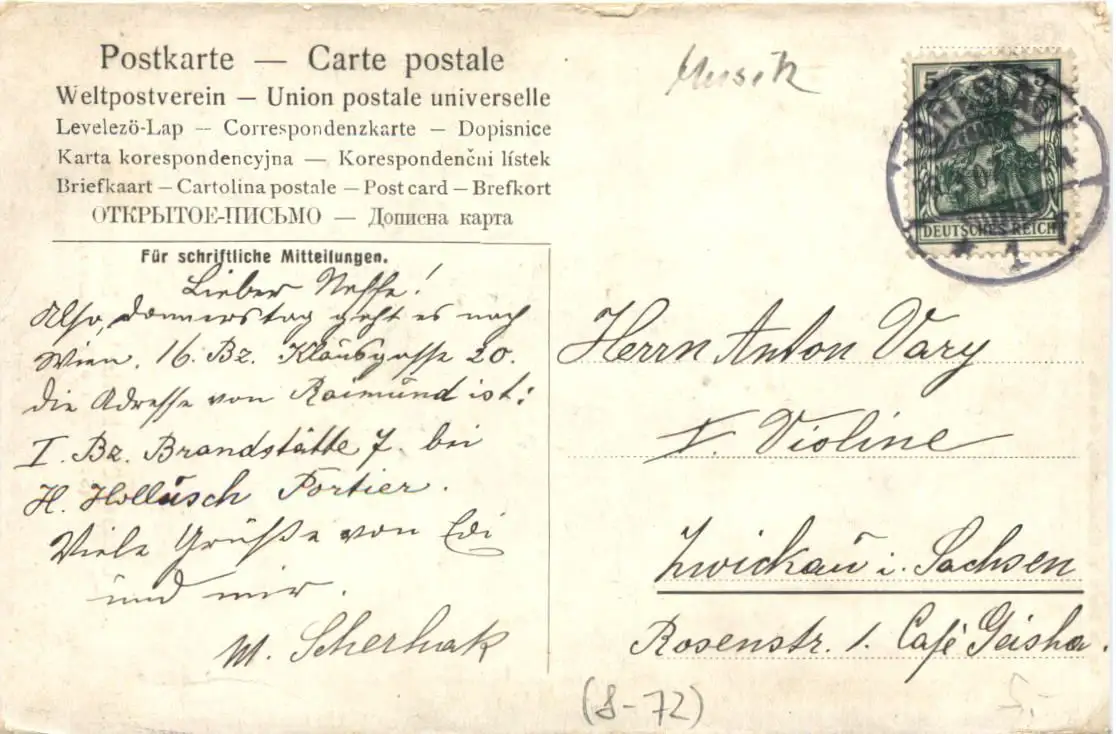 Postkarte — Carte postale
Weltpostverein — Union postale universelle
Levelezö-Lap — Correspondenzkarte — Dopisnice
Karta korespondencyjna — Korespondenčni lístek
Briefkaart — Cartolina postale — Post card — Brefkort
ОТКРЫТОЕ-ПИСЬМО — Дописна карта
Für schriftliche Mitteilungen.
Lieber Neffe!
Also, Donnerstag geht es nach
Wien. 16. Bz. Klausgasse 20.
Die Adresse von Raimund ist:
I. Bz. Brandstätte 7 bei
H. Hollusch Portier.
Viele Grüße von Edi
und mir.
M. Scherhak
Musik
5 5
BRESLAU
DEUTSCHES REICH
* 1
Herrn Anton Vary
I. Violine
Zwickau i. Sachsen
Rosenstr. 1. Café Geisha.
(8-72)
5.-